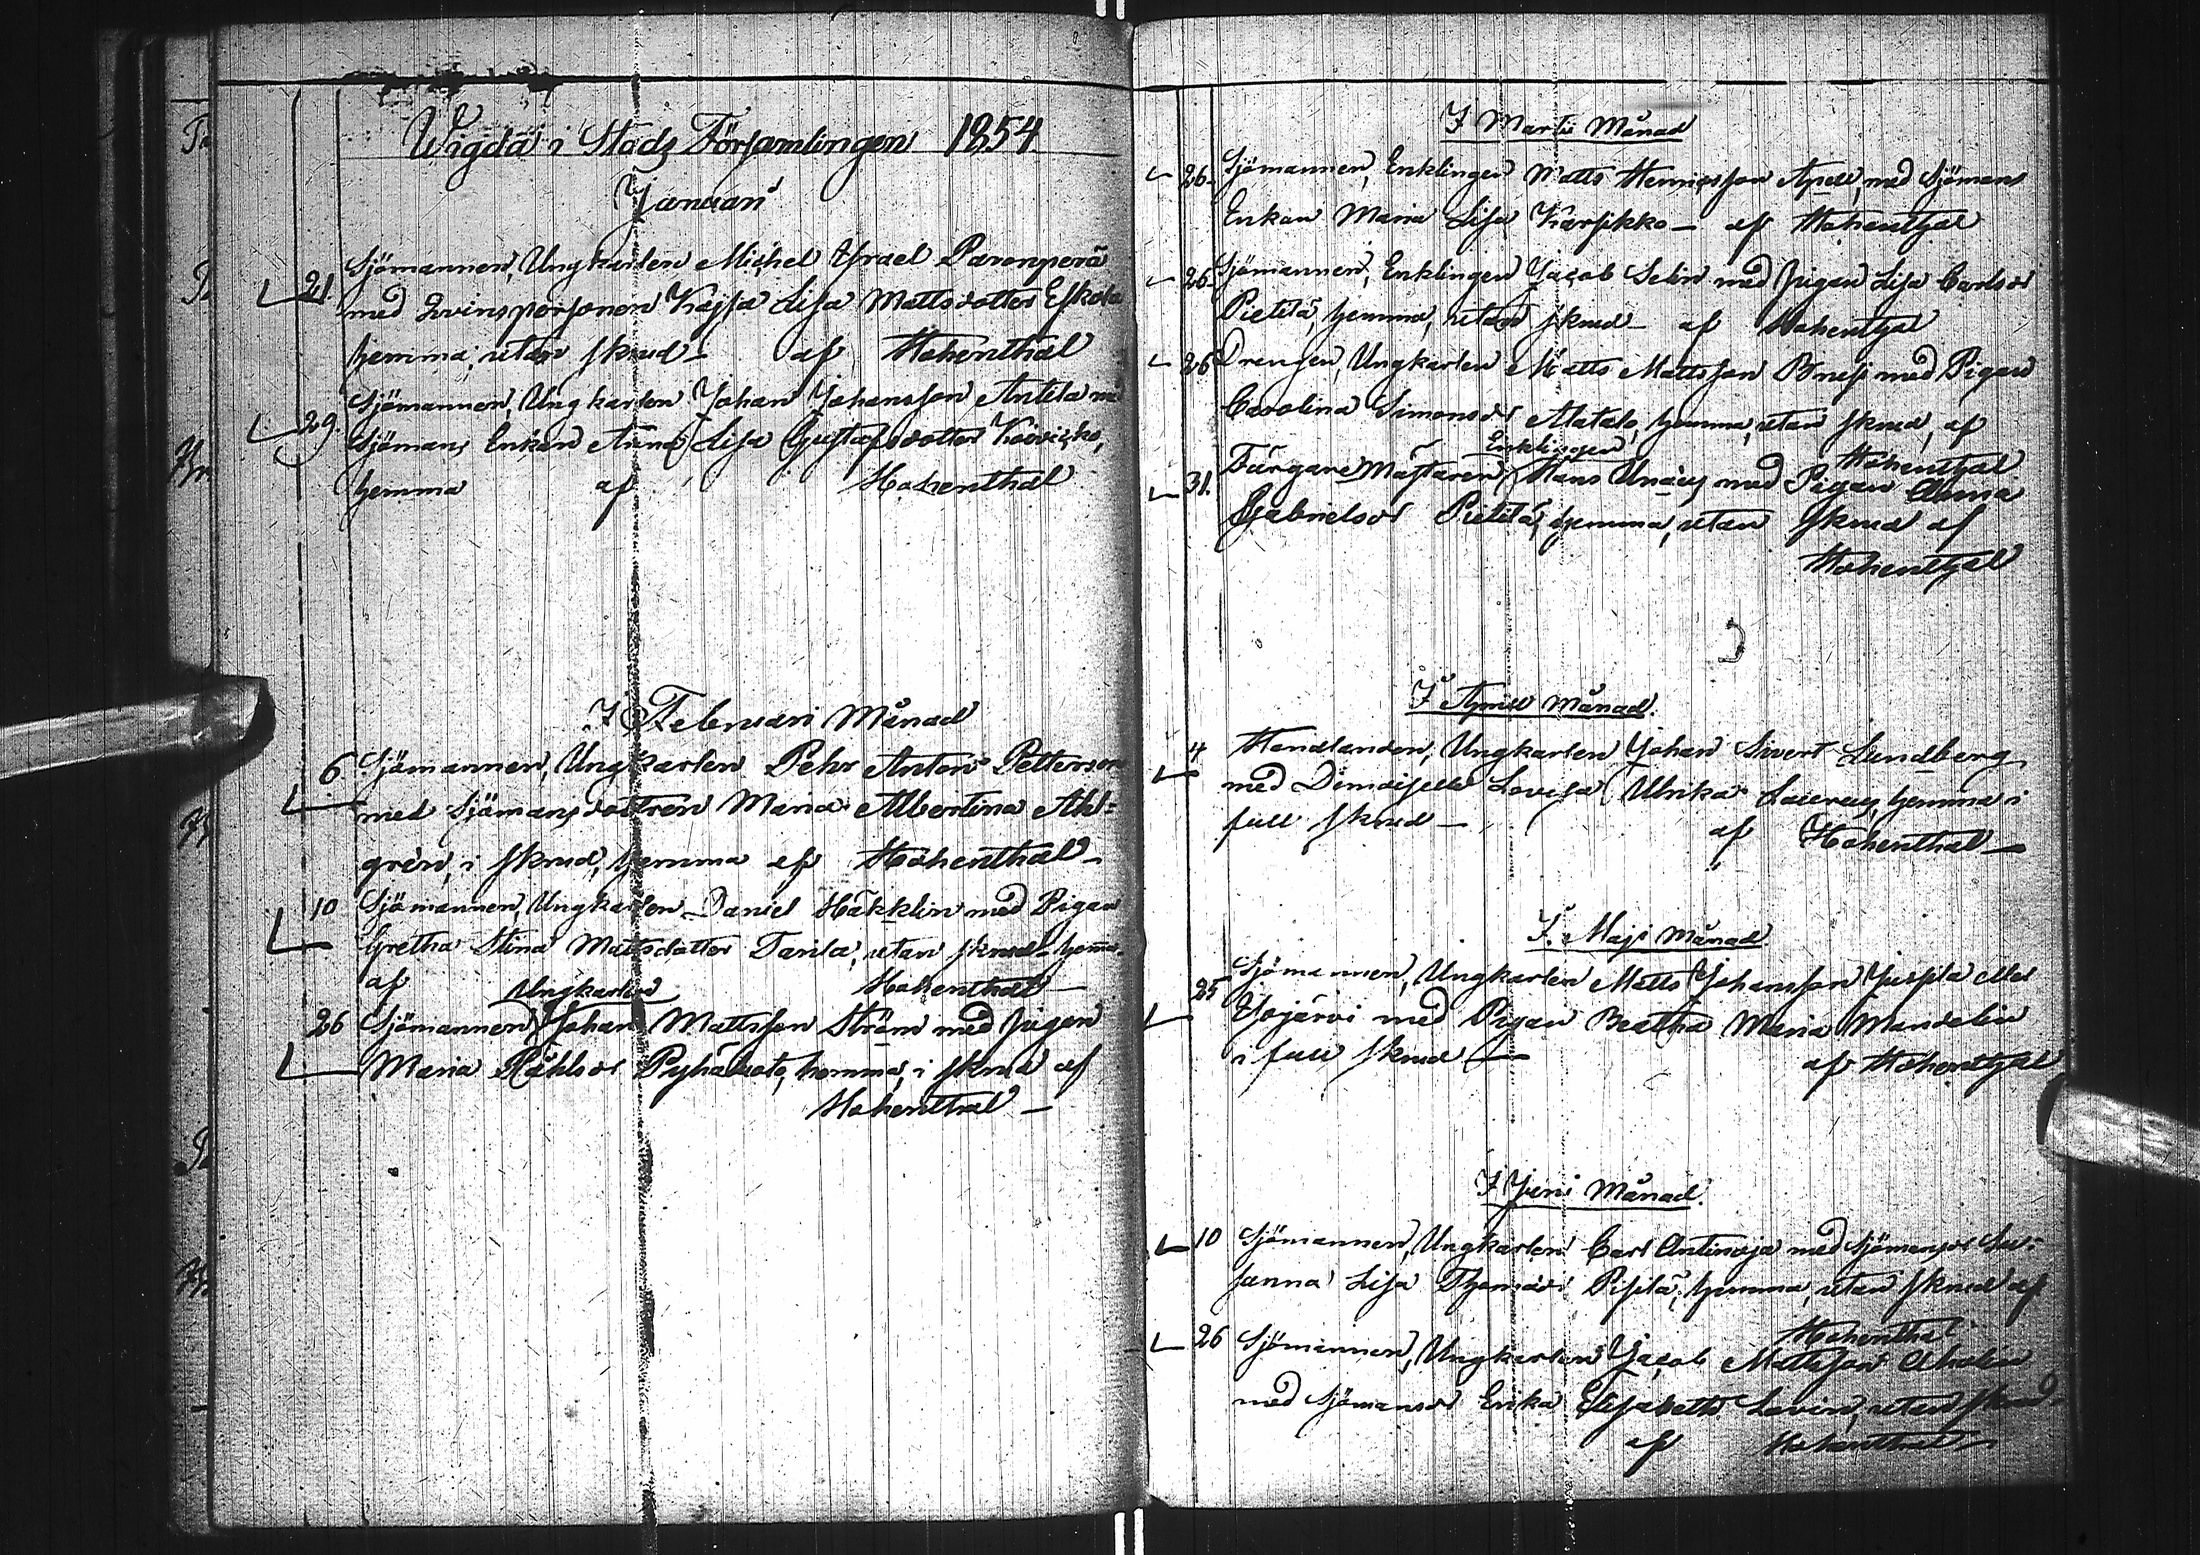 Wigda i Stads Församlingen 1854.
Januari
Sjömannen, Ungkarlen Michel Israel Paronperä
21. med Qvinspersonen Kajsa Lisa Mattsdotter Eskola
hemma; utan skrud – af Hohenthal
Sjömannen, Ungkarlen Johan Johansson Antila med
29. Sjömans Enkan Anna Lisa Gustafsdotter
hemma af Hohenthal
I Februari Månad
6 Sjömannen, Ungkarlen Pehr Anton Petterson
med Sjömansdottren Maria Albertina Ahl=
grén, i skrud, hemma af Hohenthal –
10 Sjömannen, Ungkarlen Daniel Häkklin med Pigan
Gretha Stina Mattsdotter Tanila, utan skrud – hemma
af Hohenthal –
Ungkarlen
26 Sjömannen Johan Mattsson Ström med pigan
Maria Pyhäluoto, hemma, i skrud af
Hohenthal –
I Martii Månad
26. Sjömannen, Enklingen Matts Henricsson med Sjömans
Enkan Maria Lisa Karsikko – af Hohenthal
26. Sjömannen, Enklingen Jacob Selin med pigan Lisa Carlsdr
Pietilä, hemma, utan skrud – af Hohenthal
26 Drengen, Ungkarlen Matts Mattsson med Pigan
Carolina Simonsdr Alatalo, hemma, utan skrud, af
Hohenthal
Enklingen
31. Färgare Mästaren Hans med Pigan Anna
Gabrielsdr Pietilä, hemma, utan skrud af
Hohenthal
I April Månad.
4 Handlanden, Ungkarlen Johan Sivert Lundberg
med Demoiselle Lovisa Ulrika hemma i
full skrud – af Hohenthal –
I Maji Månad
Sjömannen, Ungkarlen Matts Johansson Juspla eller
25 Yojärvi med Pigan Beatha Maria Mandelin
i full skrud – af Hohenthal
I Juni Månad.
10 Sjömannen, Ungkarlen Carl Antinoja med Sjömansdr Su=
sanna Lisa Thomasdr Pispla, hemma, utan skrud af
Hohenthal
26 Sjömannen, Ungkarlen Jacob Mattsson Aholin
med Sjömansdr Erika Elisabeth Levin, utan skrud –
af Hohenthal –